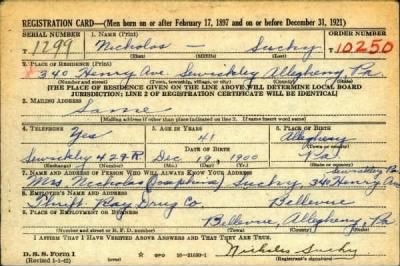 REGISTRATION CARD—(Men born on or after February 17, 1897 and on or before December 31, 1921)
SERIAL NUMBER 1. NAME (Print) ORDER NUMBER
1299 Nicholas — Suchy T10250
(First) (Middle) (Last)
2. PLACE OF RESIDENCE (Print)
340 Henry Ave. Sewickley Allegheny Pa.
(Number and street) (Town, township, village, or city) (County) (State)
[THE PLACE OF RESIDENCE GIVEN ON THE LINE ABOVE WILL DETERMINE LOCAL BOARD
JURISDICTION; LINE 2 OF REGISTRATION CERTIFICATE WILL BE IDENTICAL]
3. MAILING ADDRESS
Same
[Mailing address if other than place indicated on line 2. If same insert word same]
4. TELEPHONE 5. AGE IN YEARS 6. PLACE OF BIRTH
Yes 41 Allegheny
DATE OF BIRTH (Town or county)
Sewickley 429-R Dec 19, 1900 Pa
(Exchange) (Number) (Mo.) (Day) (Yr.) (State or country)
7. NAME AND ADDRESS OF PERSON WHO WILL ALWAYS KNOW YOUR ADDRESS Sewickley Pa
Mrs Nicholas (Josephine) Suchy, 340 Henry Ave
8. EMPLOYER'S NAME AND ADDRESS
Thrift Ray Drug Co. Bellevue
9. PLACE OF EMPLOYMENT OR BUSINESS
Bellevue, Allegheny, Pa
(Number and street or R. F. D. number) (Town) (County) (State)
I AFFIRM THAT I HAVE VERIFIED ABOVE ANSWERS AND THAT THEY ARE TRUE.
D. S. S. Form 1 Nicholas Suchy
(Revised 1-1-42) GPO 16—21630-1 (Registrant's signature)